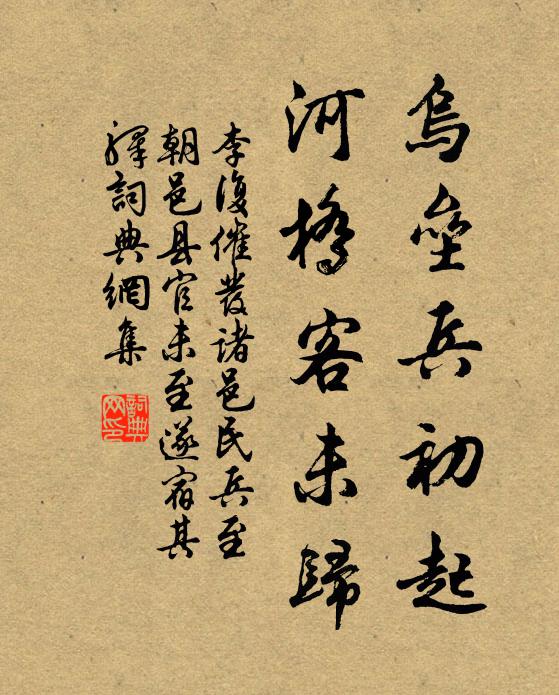 烏壘兵初起
河橋客未歸
李復催發諸邑民兵至
朝邑县官未至遂宿其
驛詞典網集
詞典
网印